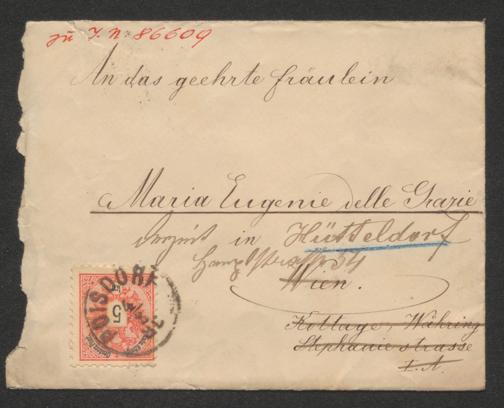 zu I. N. 86609
An das geehrte Fräulein
Maria Eugenie delle Grazie
derzeit in Hütteldorf
Hauptstrasse 34
Wien.
Kottage, Währing
Stephanie strasse
POISDORF
5